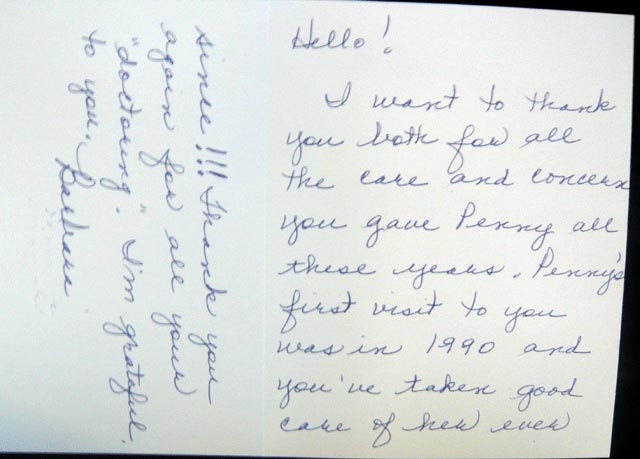 Hello!
I want to thank
you both for all
the care and concern
you gave Penny all
these years. Penny's
first visit to you
was in 1990 and
you've taken good
care of her ever
since!!! Thank you
again for all your
"doctoring." I'm grateful
to you. Barbara